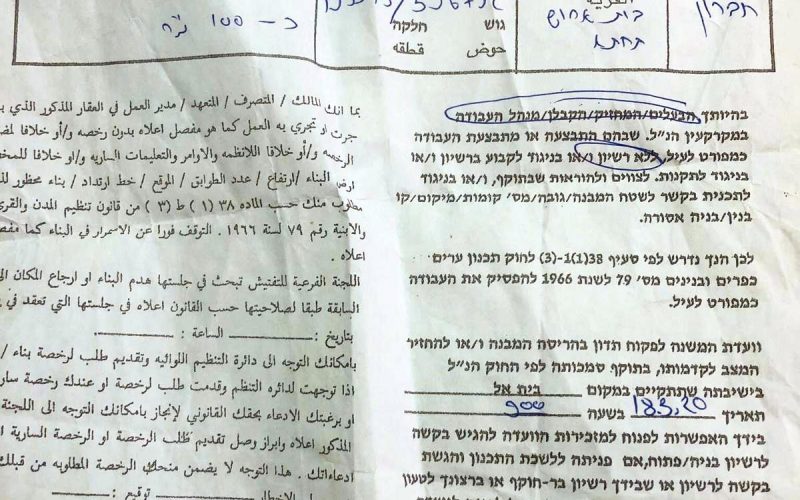 הקריה
חברון
בית
תחתא
גוש חלקה
حوض قطعه
כ- 100 מ"ר
בהיותך הבעלים/המחזיק/הקבלן/מנהל העבודה
במקרקעין הנ"ל. שבהם התבצעה או מתבצעת העבודה
כמפורט לעיל, ללא רשיון ו/או בניגוד לקבוע ברשיון ו/או
בניגוד לתקנות. לצווים ולהוראות שבתוקף, ו/או בניגוד
לתכנית בקשר לשטח המבנה/גובה/מס' קומות/מיקום/קו
בנין/בניה אסורה.
לכן הנך נדרש לפי סעיף 38(1)-(3) לחוק תכנון ערים
כפרים ובנינים מס' 79 לשנת 1966 להפסיק את העבודה
כמפורט לעיל.
וועדת המשנה לפקוח תדון בהריסת המבנה ו/או להחזיר
המצב לקדמותו, בתוקף סמכותה לפי החוק הנ"ל
בישיבתה שתתקיים במקום בית אל
תאריך 18.3.20 בשעה 900
בידך האפשרות לפנות למזכירות הוועדה להגיש בקשה
לרשיון בניה/פתוח, אם פניתה ללשכת התכנון והגשת
בקשה לרשיון או שבידך רשיון בר-תוקף או ברצונך לטעון
بما انك المالك / المتصرف / المتعهد / مدير العمل في العقار المذكور الذي
جرت او تجري به العمل كما هو مفصل اعلاه بدون رخصه و/أو خلافا
الرخصه و/أو خلافا للانظمه والاوامر والتعليمات الساريه و/او خلافا
البناء / ارتفاع / عدد الطوابق / الموقع / خط ارتداد / بناء محظور
مطلوب منك حسب الماده ٣٨ (١) ط (٣) من قانون تنظيم المدن
والابنية رقم ٧٩ لسنة ١٩٦٦. التوقف فورا عن الاسمرار في البناء كما
اعلاه .
اللجنة الفرعية للتفتيش تبحث في جلستها هدم البناء او ارجاع المكان
السابقة طبقا لصلاحيتها حسب القانون اعلاه في جلستها التي تعقد في
بتاريخ : الساعة :
بامكانك التوجه الى دائرة التنظيم اللوائيه وتقديم طلب لرخصة بناء /
اذا توجهت لدائره التنظم وقدمت طلب لرخصة او عندك رخصة
او برغبتك الادعاء بحقك القانوني لإنجاز بامكانك التوجه الى اللجنة
المذكور اعلاه وابراز وصل تقديم طلب الرخصة او الرخصة السارية
ادعاءاتك . هذا التوجه لا يضمن منحك الرخصة المطلوبه من قبلك
الاخطار توقيع :